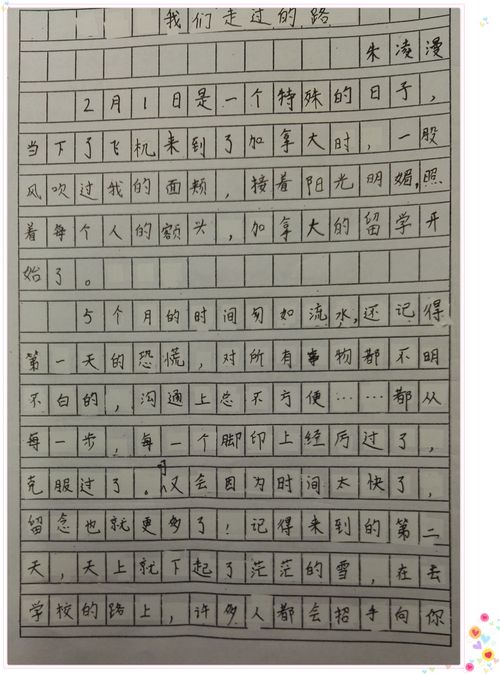 我们走过的路
朱凌漫
2月1日是一个特殊的日子，
当下了飞机来到了加拿大时，一股
风吹过我的面颊，接着阳光明媚，照
着每个人的额头，加拿大的留学开
始了。
5个月的时间匆如流水，还记得
第一天的恐慌，对所有事物都不明
不白的，沟通上总不方便……都从
每一步，每一个脚印上经历过了，
克服过了。可又会因为时间太快了，
留念也就更多了！记得来到的第二
天，天上就下起了茫茫的雪，在去
学校的路上，许多人都会招手向你